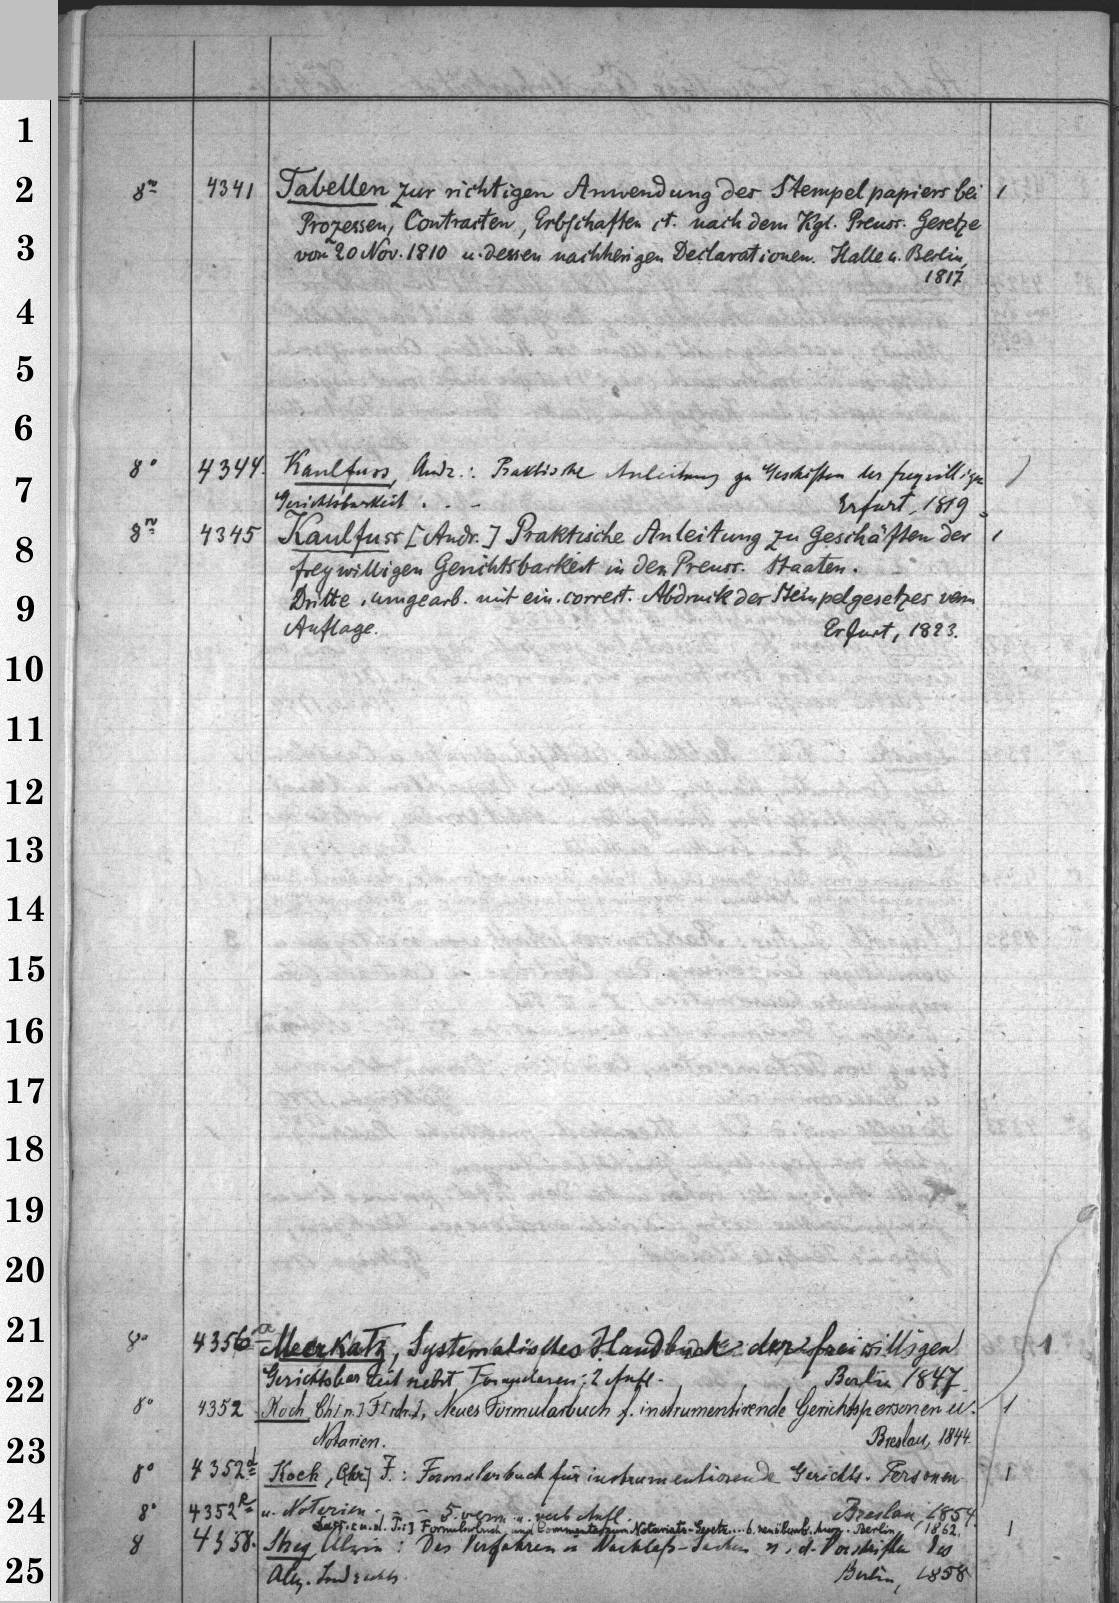 1
2
3
4
5
6
7
8
9
10
11
12
13
14
15
16
17
18
19
20
21
22
23
24
25
8º 4341 Tabellen zur richtigen Anwendung des Stempelpapiers bei 1
Prozessen, Contracten, Erbschaften etc. nach dem Kgl. Preuss. Gesetze
vom 20 Nov. 1810 u. dessen nachherigen Declarationen. Halle u. Berlin,
1817
8º 4344. Kaulfuss, Andr.: Praktische Anleitung zu Geschäften der freywilligen
Gerichtsbarkeit . - - Erfurt, 1819
8º 4345 Kaulfuss [Andr.] Praktische Anleitung zu Geschäften der 1
freywilligen Gerichtsbarkeit in den Preuss. Staaten.
Dritte, umgearb. mit ein. correct. Abdruck des Stempelgesetzes verm
Auflage. Erfurt, 1823.
8º 4356 a Meerkatz, Systematisches Handbuch der freiwilligen 1
Gerichtsbarkeit nebst Formularen; 2 Aufl. Berlin 1847
8º 4352 Koch Ch[rn.] F[rdr.], Neues Formularbuch f. instrumentirende Gerichtspersonen u. 1
Notarien. Breslau, 1844.
8º 4352 d Koch, [Chr] F.: Formularbuch für instrumentirende Gerichts-Personen 1
8º 4352 u. Notarien - - - 5. verm. u. verb Aufl. Breslau, 1854.
Formularbuch und Commentar zum Notariats-Gesetz.... 6. Berlin, 1862. 1
8 4358. Alwin: Das Verfahren in Nachlaß-Sachen n. d. Vorschriften des
Allg. Landrechts. Berlin, 1858